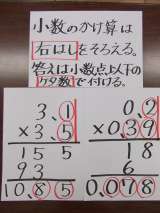 小数のかけ算は
右はしをそろえる。
答えは小数点より下の
ケタ数で付ける。
3.1
×3.5
155
93
10.85
0.2
×0.39
18
6
0.078